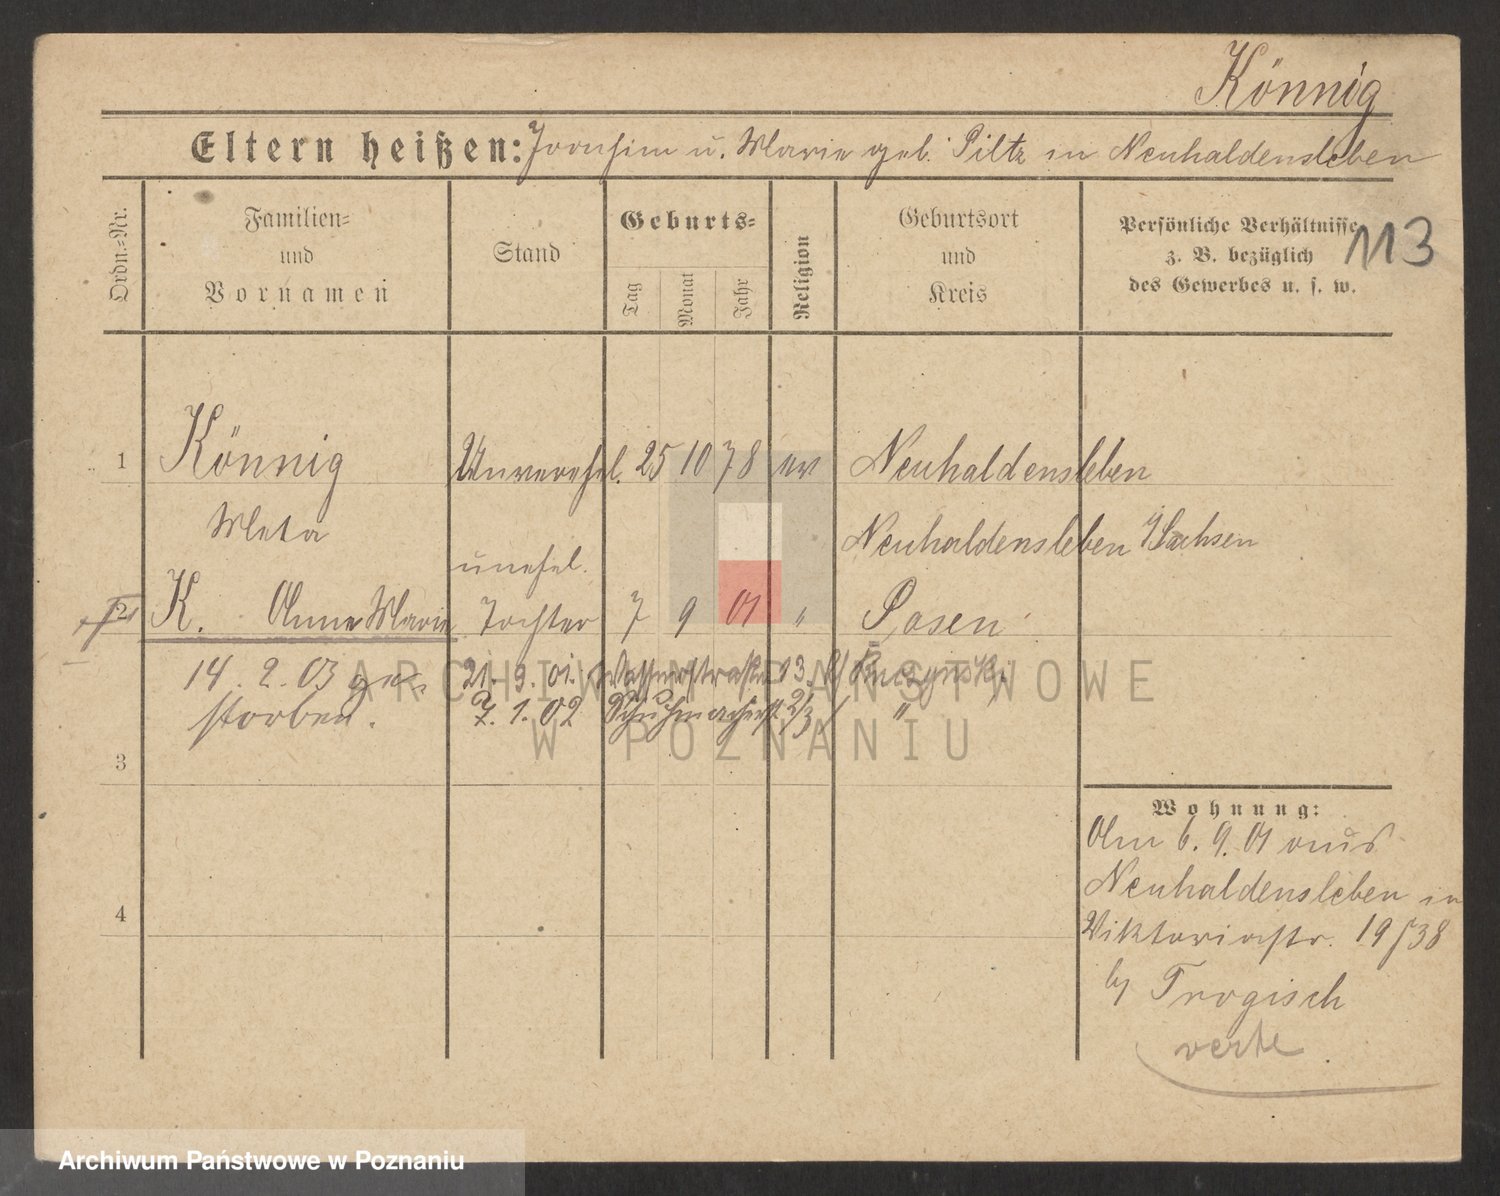 Könnig
Eltern heißen: Joachim u. Marie geb. Piltz in Neuhaldensleben
Ordn.-Nr.
Familien-
und
Vornamen
Stand
Geburts-
Tag
Monat
Jahr
Religion
Geburtsort
und
Kreis
Persönliche Verhältnisse
z. B. bezüglich
des Gewerbes u. s. w.
113
1 Könnig Unverehel. 25 10 78 ev Neuhaldensleben
Meta Neuhaldensleben Sachsen
unehel.
2 K. Anna Marie Tochter 7 9 01 " Posen
14. 2. 03 ge- 21. 9. 01. Wasserstraße 13.
storben. 7. 1. 02 Schuhmacherst. 2/3 "
3
4
Wohnung:
Am 6. 9. 01 aus
Neuhaldensleben in
Viktoriastr. 19/38
by Trogisch
verte
ARCHIWUM PAŃSTWOWE
W POZNANIU
Archiwum Państwowe w Poznaniu